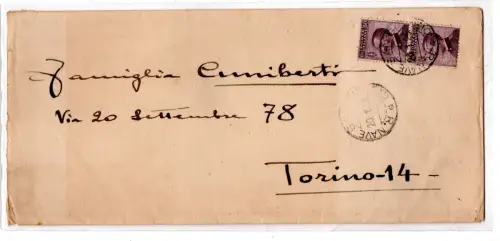 Famiglia Cuniberti
Via 20 Settembre 78
Torino-14-